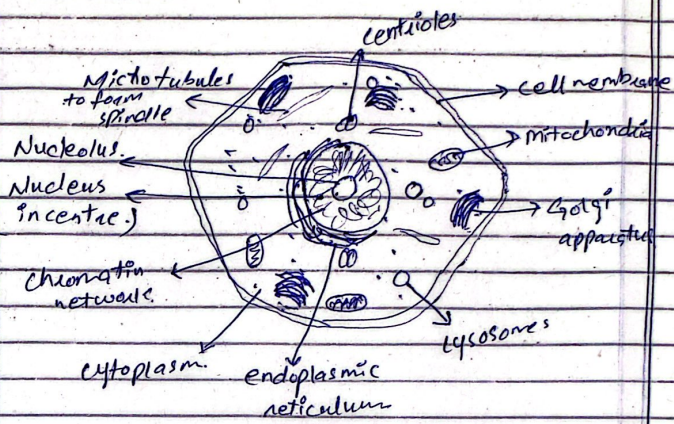 centrioles
Microtubules
to form
spindle
cell membrane
mitochondria
Nucleolus.
Nucleus
in centre.)
Golgi
apparatus
Chromatin
network.
Lysosomes
cytoplasm.
endoplasmic
reticulum